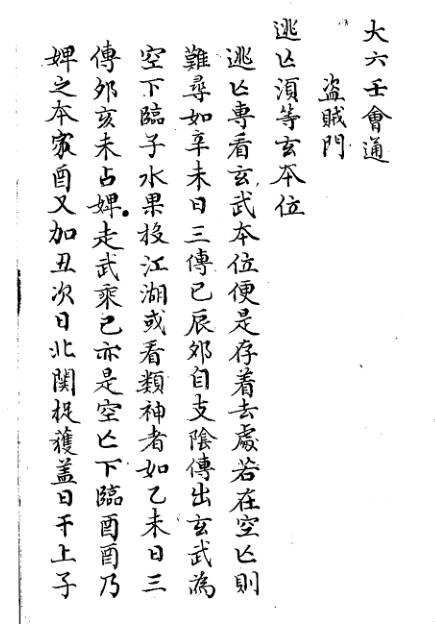 大六壬會通
盜賊門
逃亾須等玄本位
逃亾專看玄武本位便是存着去處若在空亾則
難尋如辛未日三傳巳辰夘自支陰傳出玄武為
空下臨子水果投江湖或看類神者如乙未日三
傳夘亥未占婢走武乘巳亦是空亾下臨酉酉乃
婢之本家酉又加丑次日北関捉獲盖日干上子